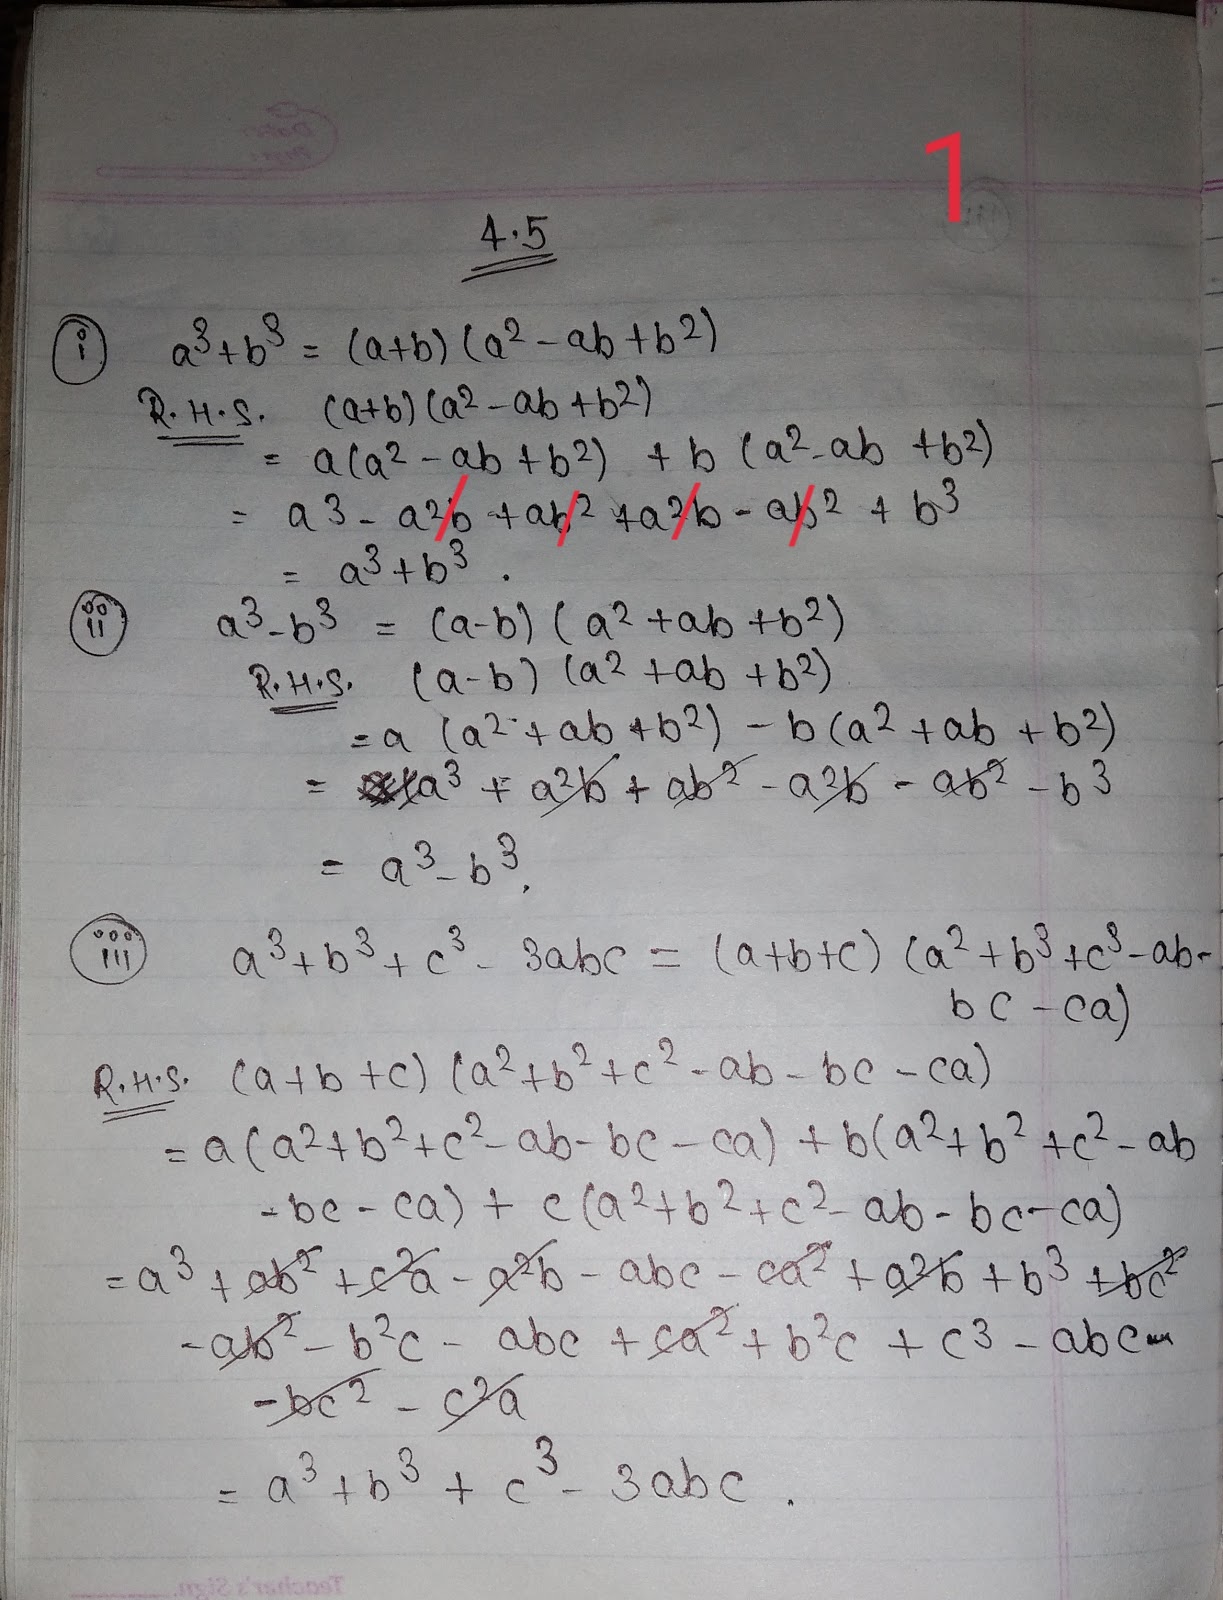 1
4.5
(i) a³+b³ = (a+b) (a²-ab+b²)
R.H.S. (a+b) (a²-ab+b²)
= a(a²-ab+b²) + b (a²-ab +b²)
= a³- a²b +ab² +a²b - ab² + b³
= a³+b³ .
(ii) a³-b³ = (a-b) (a²+ab+b²)
R.H.S. (a-b) (a²+ab+b²)
= a (a²+ab+b²) - b(a²+ab+b²)
= a³ + a²b + ab² - a²b - ab² - b³
= a³-b³.
(iii) a³+b³+c³- 3abc = (a+b+c) (a²+b³+c³-ab-
bc-ca)
R.H.S. (a+b+c) (a²+b²+c²-ab-bc-ca)
= a(a²+b²+c²-ab-bc-ca) + b(a²+b²+c²-ab
-bc-ca) + c(a²+b²+c²-ab-bc-ca)
= a³ + ab² + c²a - a²b - abc - ca² + a²b + b³ + bc²
- ab² - b²c - abc + ca² + b²c + c³ - abc
- bc² - c²a
= a³+b³+c³- 3abc .
Teacher's Sign.